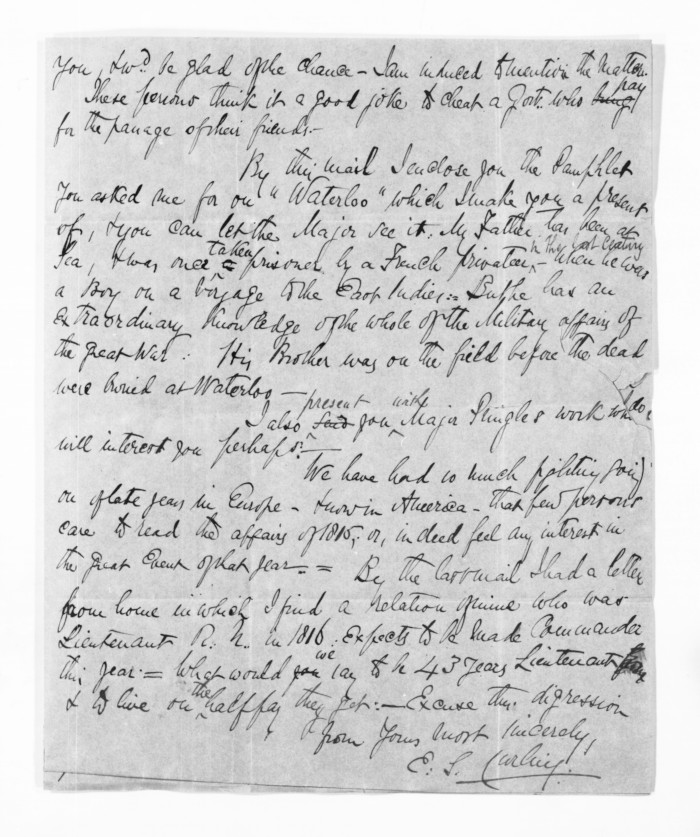 you, & wd. be glad of the chance - I am induced to mention the matter.
These persons think it a good joke to cheat a Govt. who pay
for the passage of their friends.-
By this mail I enclose you the Pamphlet
you asked me for on "Waterloo" which I make you a present
of, & you can let the Major see it. My Father has been at
Sea, & was once taken prisoner by a French privateer, - in the last Century when he was
a Boy on a voyage to the East Indies := But he has an
extraordinary knowledge of the whole of the Military affairs of
the great War : His Brother was on the field before the dead
were buried at Waterloo -
I also present you with Major Pringles work
will interest you perhaps :-
We have had so much fighting going
on of late years in Europe - & now in America - that few persons
care to read the affairs of 1815, or, indeed feel any interest in
the great Event of that year. = By the last mail I had a letter
from home in which I find a relation of mine who was
Lieutenant R. N. in 1815. Expects to be made Commander
this year := What would we say to be 43 years Lieutenant
& to live on the half pay they get :- Excuse this digression
from Yours most sincerely,
E. S. Curling.